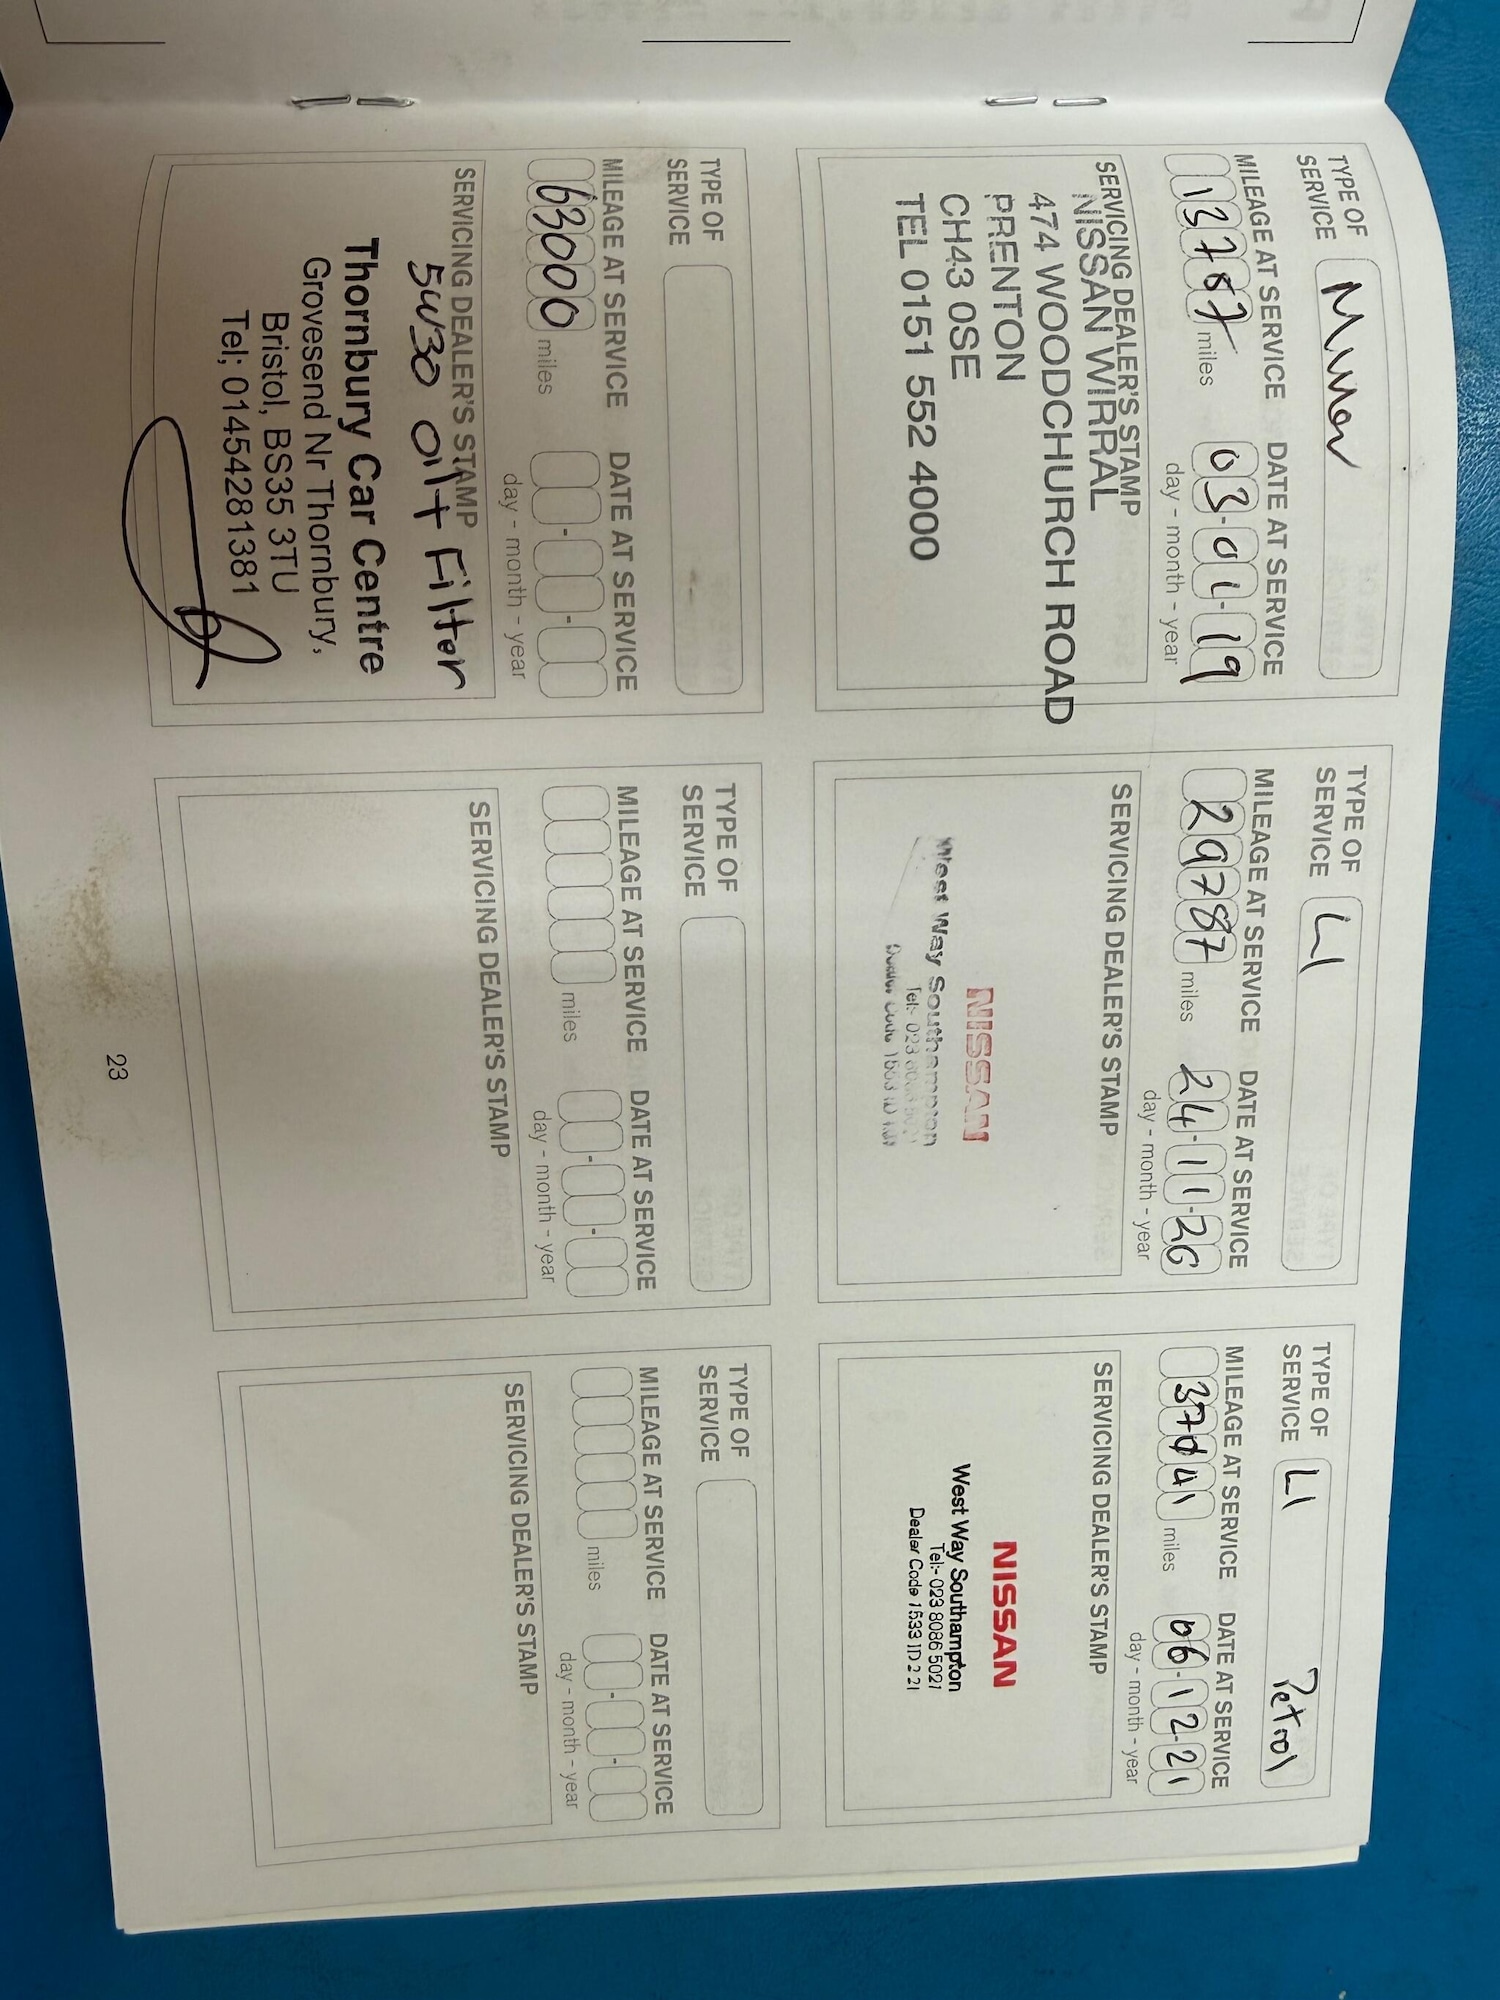 TYPE OF
SERVICE
Minor
MILEAGE AT SERVICE
DATE AT SERVICE
13767 miles
03-01-19
day - month - year
SERVICING DEALER'S STAMP
NISSAN WIRRAL
474 WOODCHURCH ROAD
PRENTON
CH43 0SE
TEL 0151 552 4000
TYPE OF
SERVICE
LI
MILEAGE AT SERVICE
DATE AT SERVICE
29787 miles
24-11-20
day - month - year
SERVICING DEALER'S STAMP
NISSAN
West Way Southampton
Tel:- 023
Dealer Code
TYPE OF
SERVICE
LI Petrol
MILEAGE AT SERVICE
DATE AT SERVICE
miles
06-12-21
day - month - year
SERVICING DEALER'S STAMP
NISSAN
West Way Southampton
Tel:- 023 8086 5021
Dealer Code 1533 ID 2 21
TYPE OF
SERVICE
MILEAGE AT SERVICE
DATE AT SERVICE
63000 miles
day - month - year
SERVICING DEALER'S STAMP
5W30 Oil + Filter
Thornbury Car Centre
Grovesend Nr Thornbury,
Bristol, BS35 3TU
Tel; 01454281381
TYPE OF
SERVICE
MILEAGE AT SERVICE
DATE AT SERVICE
miles
day - month - year
SERVICING DEALER'S STAMP
TYPE OF
SERVICE
MILEAGE AT SERVICE
DATE AT SERVICE
miles
day - month - year
SERVICING DEALER'S STAMP
23